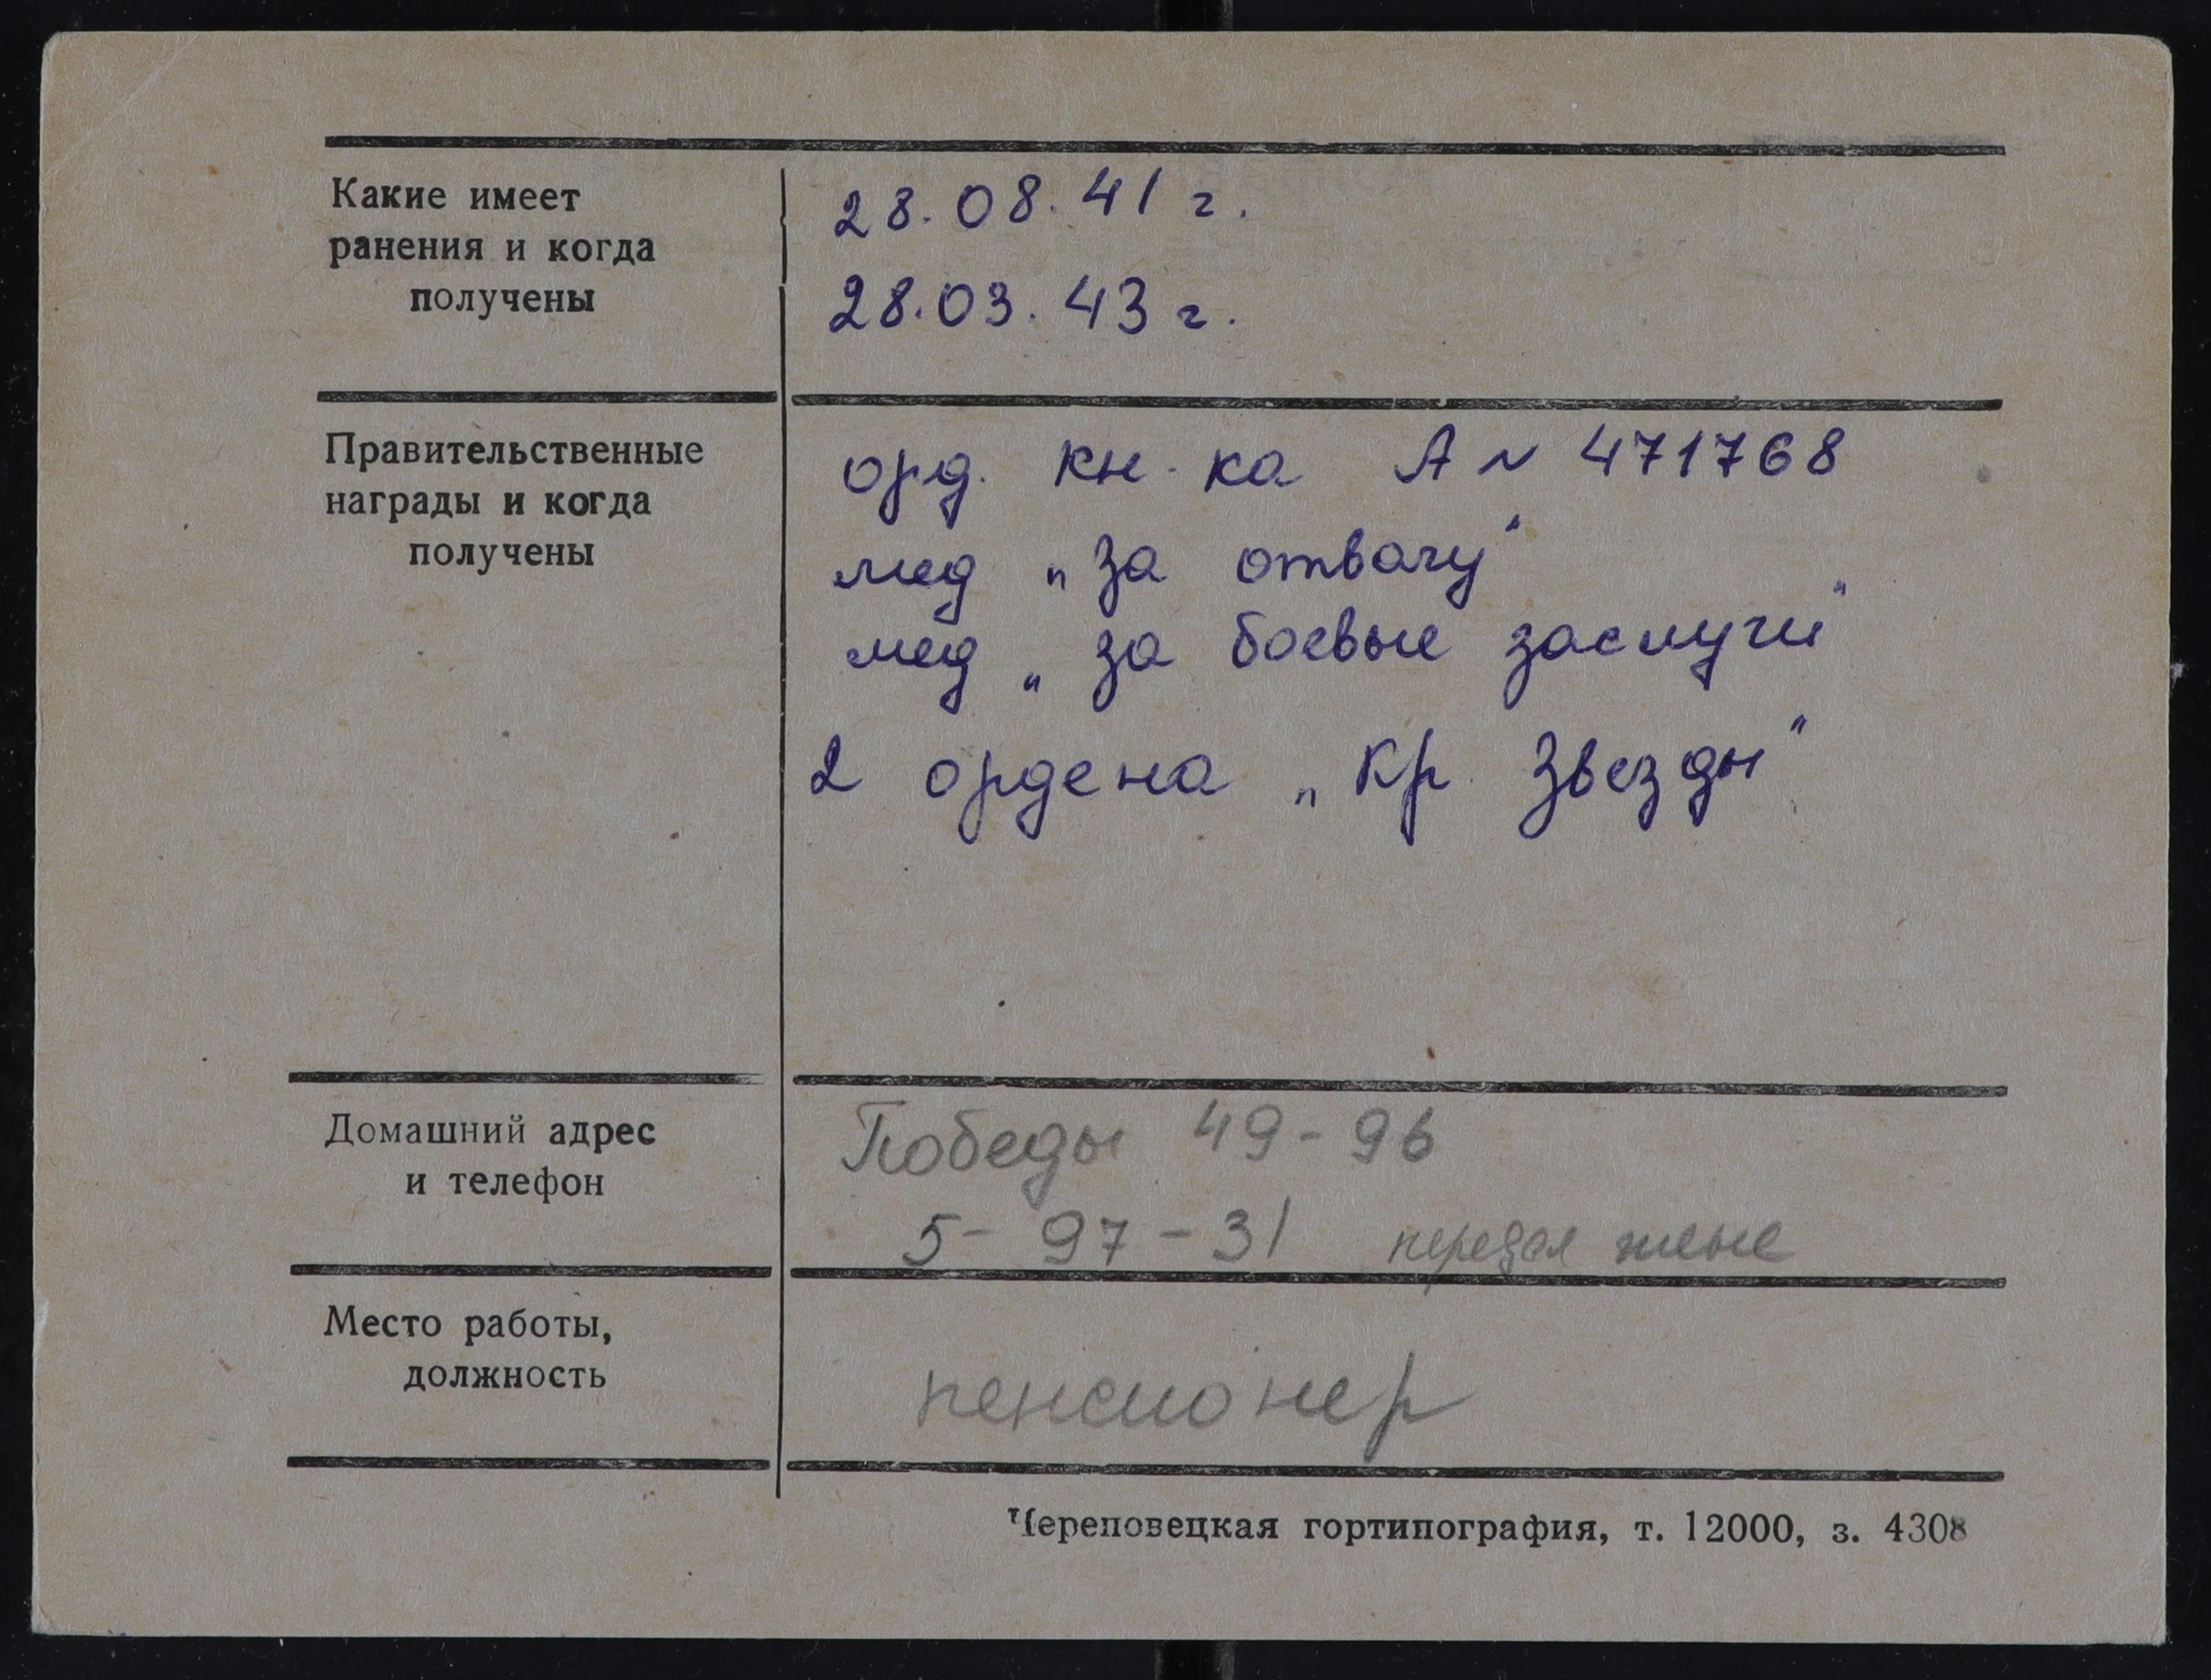 Какие имеет
ранения и когда
получены
28.08.41 г.
28.03.43 г.
Правительственные
награды и когда
получены
орд. кн-ка А № 471768
мед „за отвагу"
мед „за боевые заслуги"
2 ордена „Кр. Звезды"
Домашний адрес
и телефон
Победы 49-96
5-97-31 передал жене
Место работы,
должность
пенсионер
Череповецкая гортипография, т. 12000, з. 4308